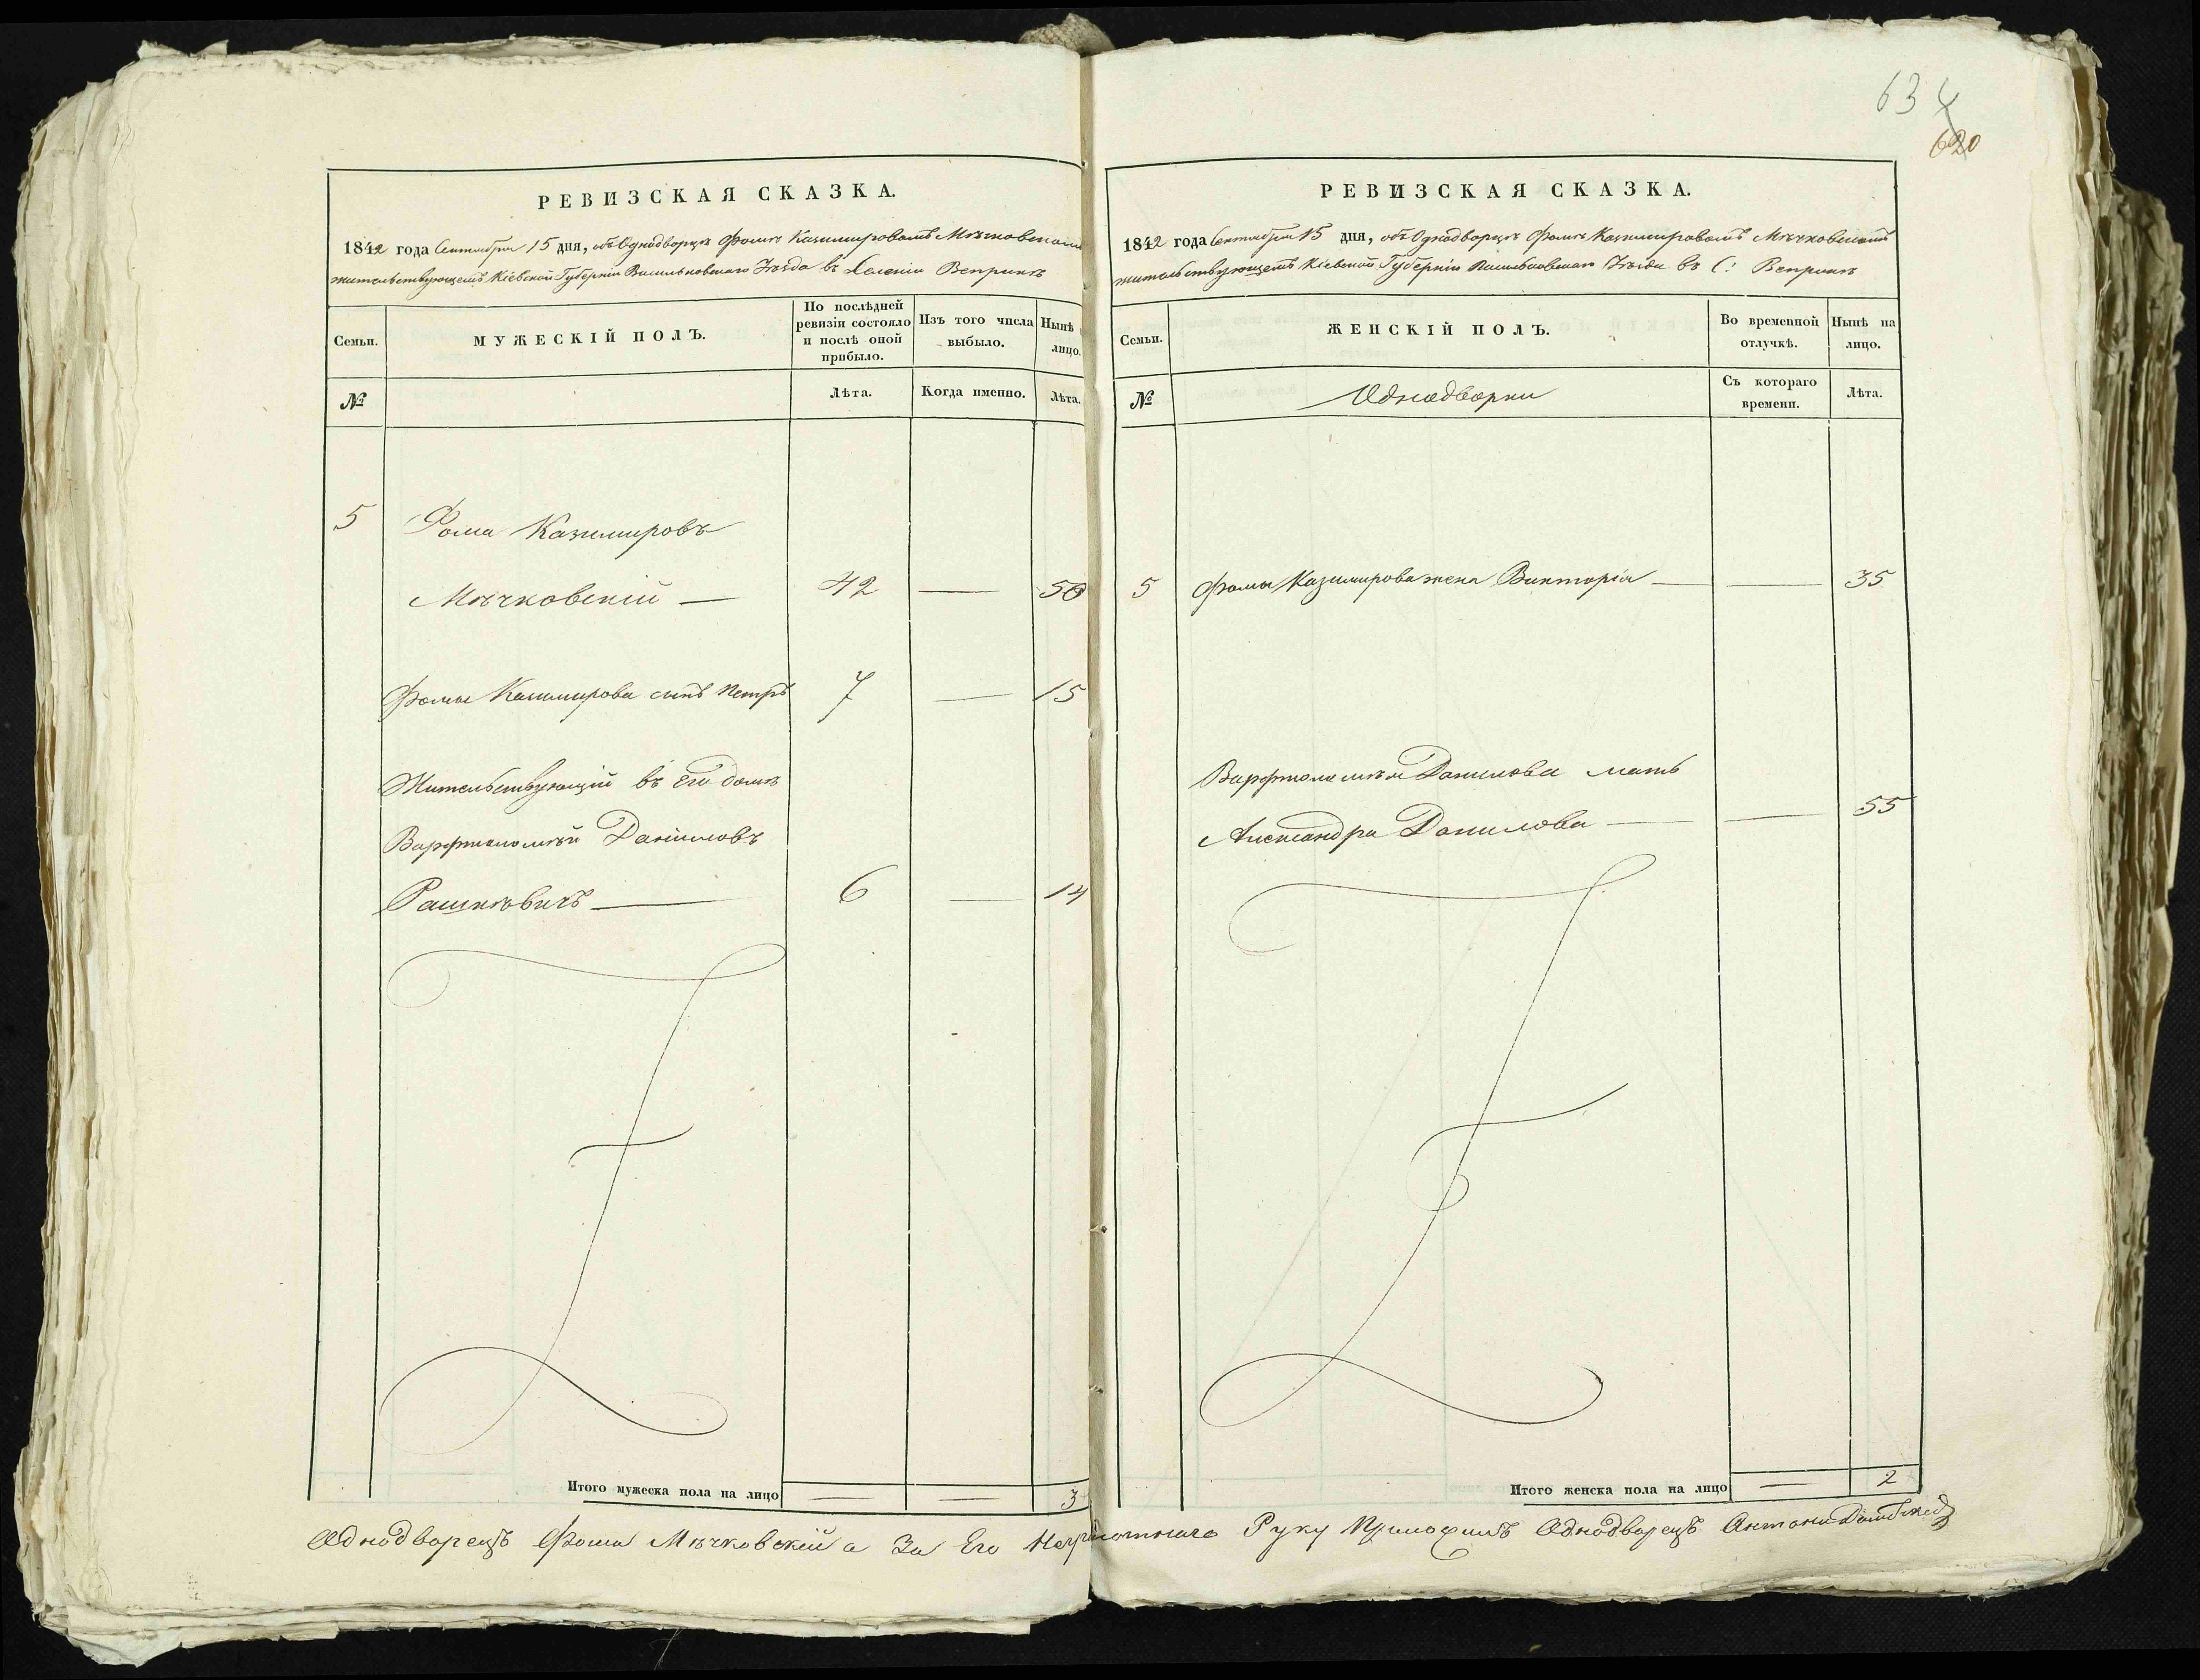 634
620
РЕВИЗСКАЯ СКАЗКА.
1842 года Сентября 15 дня, объ Однодворцѣ Фомѣ Казимировомъ Мѣчковскомъ
жительствующемъ Кіевской Губерніи Васильковскаго Уѣзда въ Селеніи Веприкѣ
Семьи.
МУЖЕСКІЙ ПОЛЪ.
По послѣдней ревизіи состояло и послѣ оной прибыло.
Изъ того числа выбыло.
Нынѣ лицо.
№
Лѣта.
Когда именно.
Лѣта.
5 Фома Казимировъ
Мѣчковскій — 42 — 50
Фомы Казимирова сынъ Петръ 7 — 15
Жительствующій въ Его домѣ
Варфоломѣй Даниловъ
— 6 — 14
Итого мужеска пола на лицо — — 3
РЕВИЗСКАЯ СКАЗКА.
1842 года Сентября 15 дня, объ Однодворцѣ Фомѣ Казимировомъ Мѣчковскомъ
жительствующемъ Кіевской Губерніи Васильковскаго Уѣзда въ С: Веприкѣ
Семьи.
ЖЕНСКІЙ ПОЛЪ.
Во временной отлучкѣ.
Нынѣ на лицо.
№
Однодворки
Съ котораго времени.
Лѣта.
5 Фомы Казимирова жена Викторія — — 35
Варфоломѣя Данилова мать
Александра Данилова — — 55
Итого женска пола на лицо — 2
Однодворецъ Фома Мѣчковскій а За Его Неграмотнаго Руку Приложилъ Однодворецъ Антони